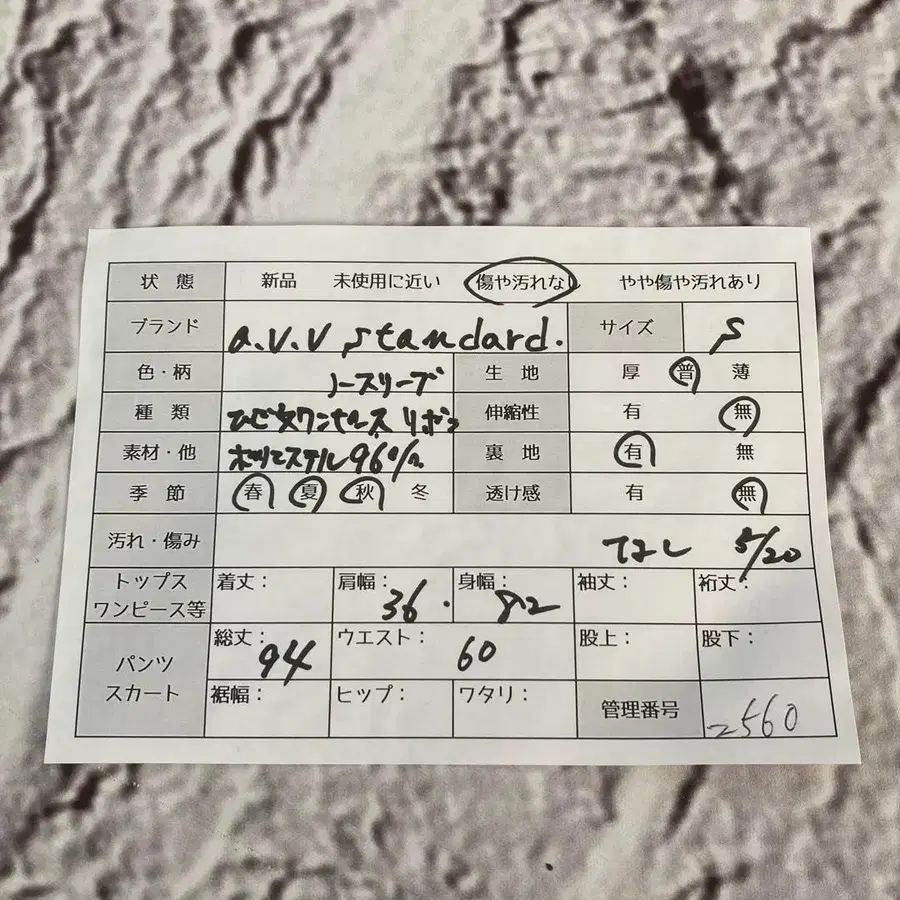 状 態 新品 未使用に近い 傷や汚れな やや傷や汚れあり
ブランド a.v.v standard. サイズ S
色・柄 ノースリーブ 生 地 厚 普 薄
種 類 ひざ丈ワンピース リボン 伸縮性 有 無
素材・他 ポリエステル96% 裏 地 有 無
季 節 春 夏 秋 冬 透け感 有 無
汚れ・傷み なし 5/20
トップス
ワンピース等 着丈: 肩幅: 36. 身幅: 82 袖丈: 裄丈:
パンツ
スカート 総丈: 94 ウエスト: 60 股上: 股下:
裾幅: ヒップ: ワタリ: 管理番号 2560